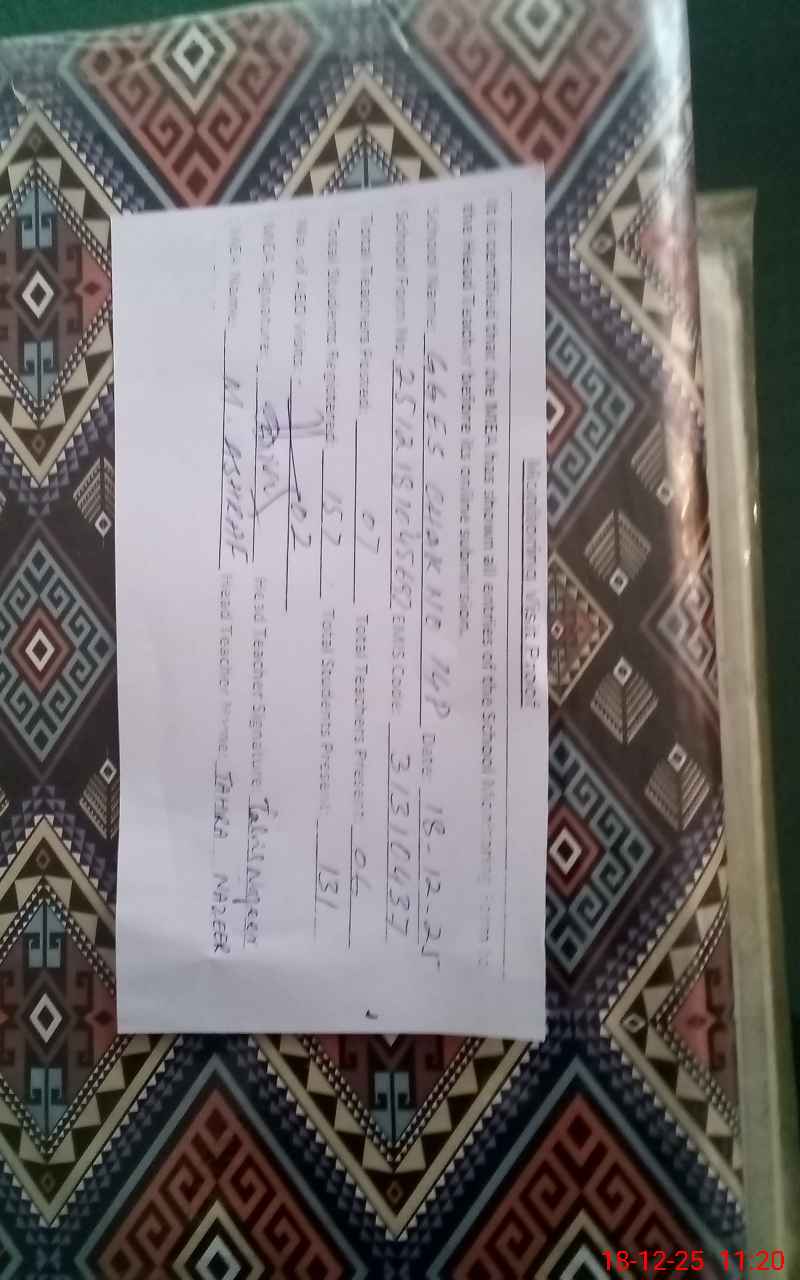 Monitoring Visit Proof
It is certified that the MEA has shown all entries of the School Monitoring Form to
the Head Teacher before its online submission.
School Name: GGES CHAK NO 148 Date: 18-12-25
School Form No: EMIS Code: 31310437
Total Teachers Posted: 07 Total Teachers Present: 06
Total Students Registered: 152 Total Students Present: 131
No. of AEO Visits: 02
MEA Signature: Head Teacher Signature:
MEA Name: M ASHRAF Head Teacher Name: TAHIRA NAZEER
18-12-25 11:20